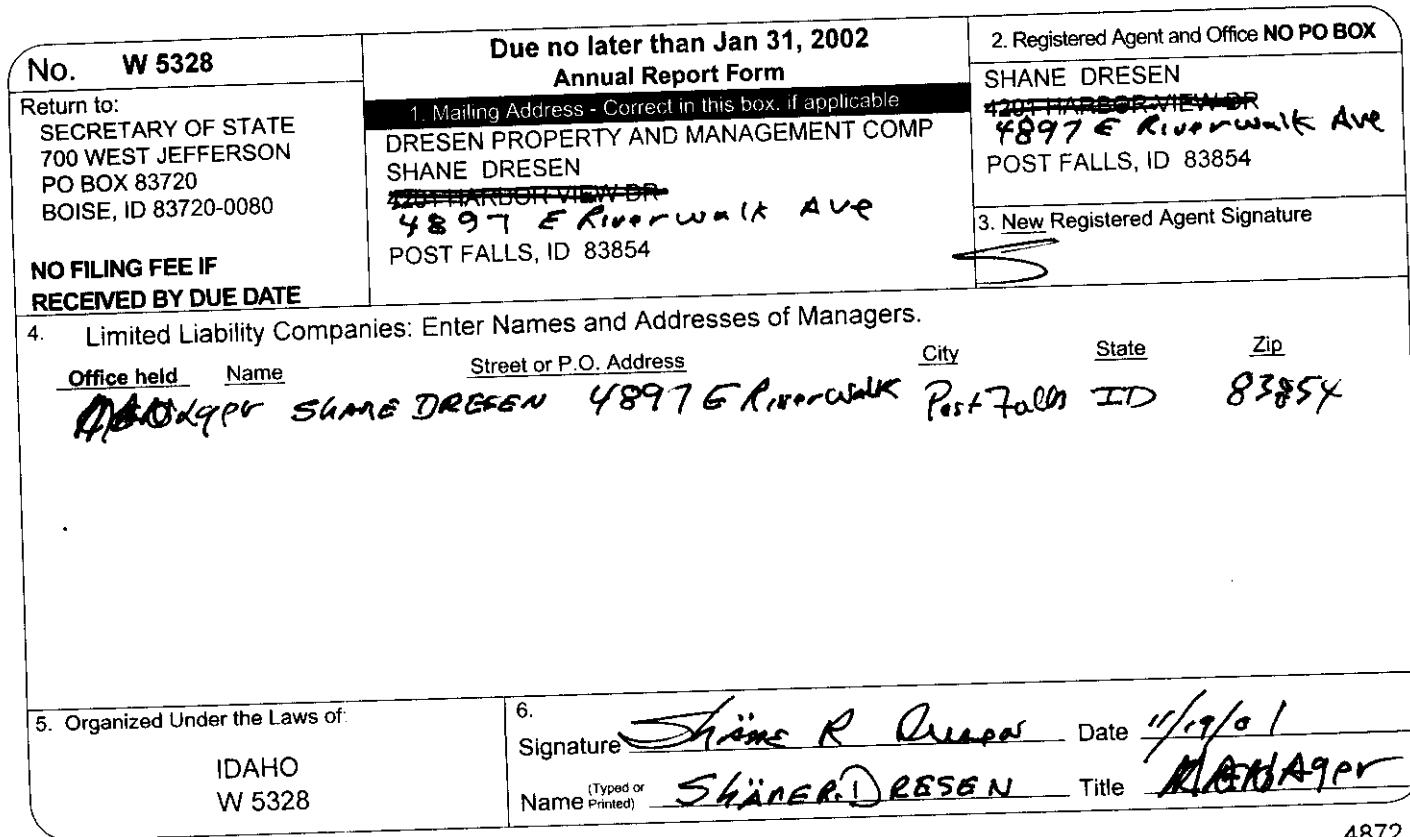 No. W 5328
Return to:
SECRETARY OF STATE
700 WEST JEFFERSON
PO BOX 83720
BOISE, ID 83720-0080
NO FILING FEE IF
RECEIVED BY DUE DATE
Due no later than Jan 31, 2002
Annual Report Form
1. Mailing Address - Correct in this box. if applicable
DRESEN PROPERTY AND MANAGEMENT COMP
SHANE DRESEN
4201 HARBOR VIEW DR
4897 E Riverwalk Ave
POST FALLS, ID 83854
2. Registered Agent and Office NO PO BOX
SHANE DRESEN
4201 HARBOR VIEW DR
4897 E Riverwalk Ave
POST FALLS, ID 83854
3. New Registered Agent Signature
4. Limited Liability Companies: Enter Names and Addresses of Managers.
Office held Name Street or P.O. Address City State Zip
Manager SHANE DRESEN 4897 E Riverwalk Post Falls ID 83854
5. Organized Under the Laws of:
IDAHO
W 5328
6.
Signature Shane R Dresen Date 11/19/01
Name (Typed or Printed) SHANE R. DRESEN Title MANAger
4872